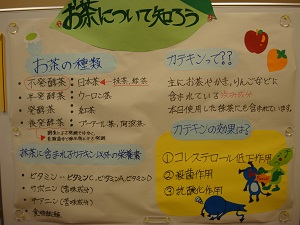 お茶について知ろう
お茶の種類
不発酵茶：日本茶←抹茶、緑茶
半発酵茶：ウーロン茶
発酵茶：紅茶
後発酵茶：プーアール茶、阿波茶
抹茶に含まれるカテキン以外の栄養素
ビタミン－ビタミンC、ビタミンA、ビタミンD
サポニン（苦味成分）
食物繊維
カテキンって??
主にお茶やかき、りんごなどに
含まれている渋味成分
本日使用した抹茶にも含まれています。
カテキンの効果は?
①コレステロール低下作用
②殺菌作用
③抗酸化作用